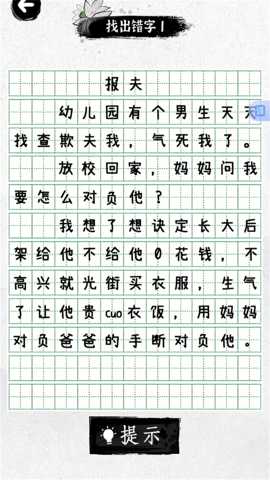 找出错字1
报夫
幼儿园有个男生天天
找查欺夫我，气死我了。
放校回家，妈妈问我
要怎么对负他？
我想了想诀定长大后
架给他不给他0花钱，不
高兴就光街买衣服，生气
了让他贵cuo衣饭，用妈妈
对负爸爸的手断对负他。
提示